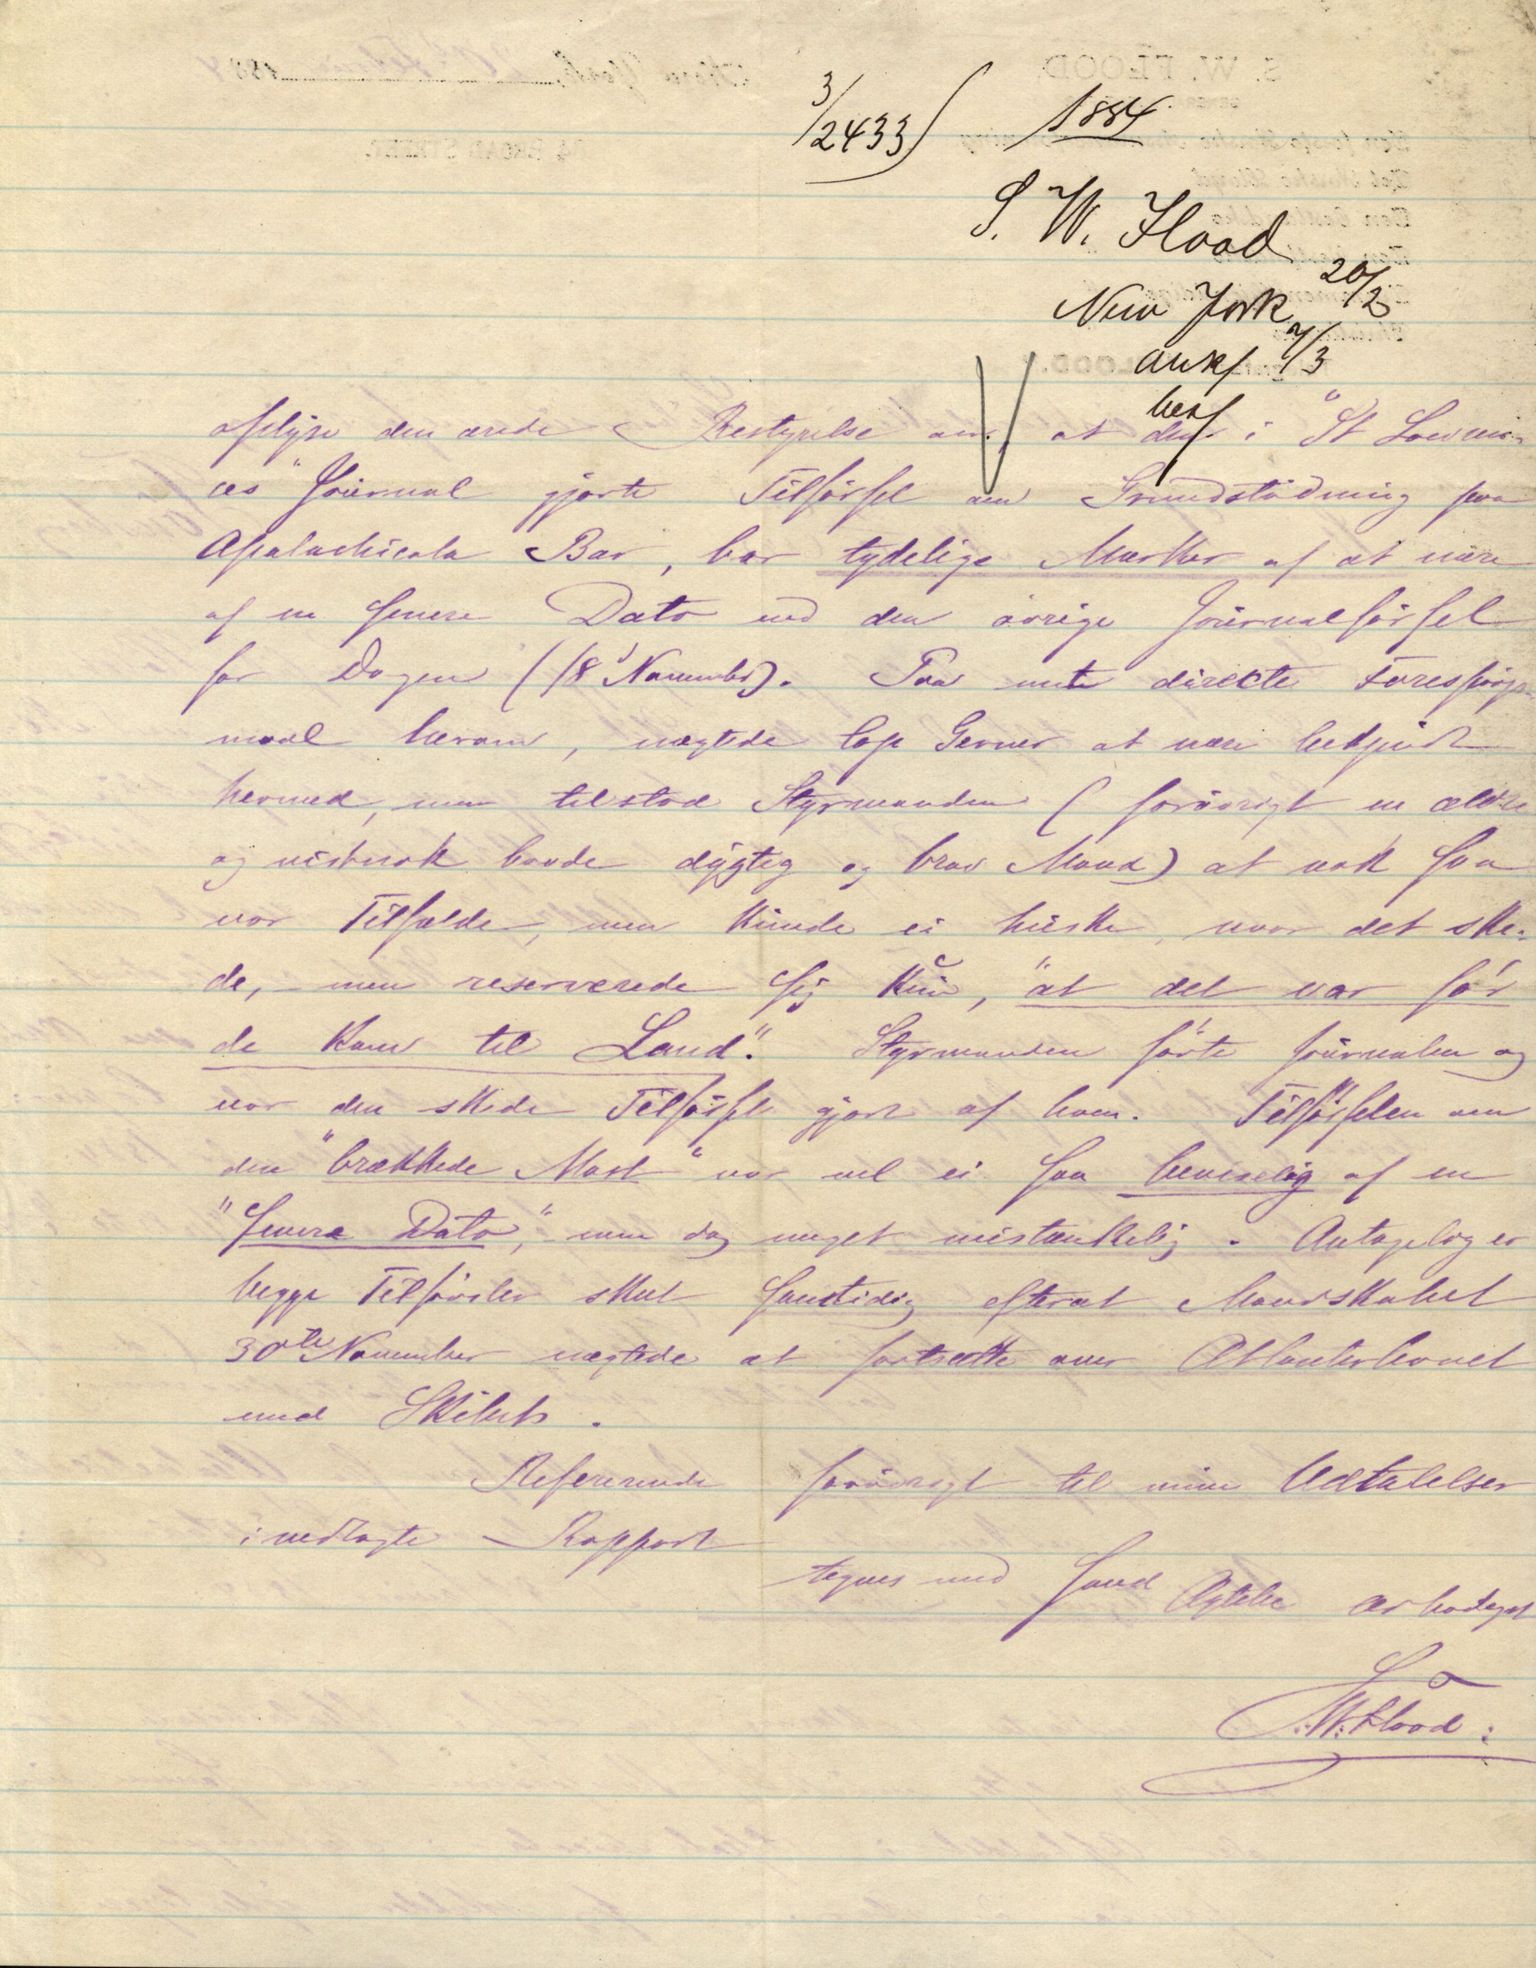 3/2433
1884
S. W. Flood
New York 20/2
ank 7/3
besv
oplyse den ærede Bestyrelse om, at den i "St Lawren-
ces" Journal gjorte Tilførsel om Grundstødning paa
Apalachicola Bar, bar tydelige Mærker af at være
af en senere Dato end den øvrige Journalførsel
for Dagen (18' November). Paa mit direkte Forespørgs-
maal herom, nægtede Cap Gerner at være bekjendt
hermed, men tilstod Styrmanden (forøvrigt en ældre
og vistnok baade dygtig og brav Mand) at nok saa
var Tilfælde, men kunde ei huske, naar det ske-
de, - men reserverede sig kun, "at det var før
de kom til Land". Styrmanden førte Journalen og
var den skede Tilførsel gjort af ham. Tilførselen om
den "brækkede Mast" var vel ei saa beviselig af en
"senere Dato", men dog meget mistænkelig. Antagelig er
begge Tilførsler skeet samtidig efterat Mandskabet
30te November nægtede at fortsætte over Atlanterhavet
med Skibet.
Refererende forøvrigt til mine Udtalelser
i vedlagte Rapport
tegnes med sand Agtelse ærbødigst
S. W. Flood